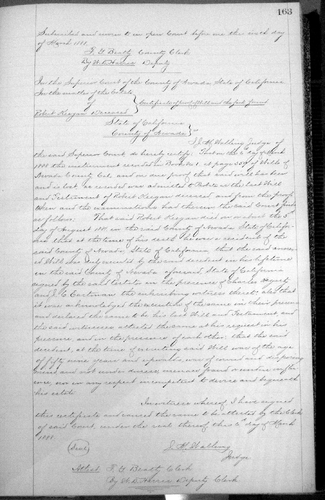 163
Subscribed and sworn to in open Court before me this sixth day
of March 1882.
F. G. Beatty County Clerk
Deputy
In the Superior Court of the County of Nevada State of California
In the matter of the Estate
of
Robert Keegan Deceased
State of California
County of Nevada
Judge of
the said Superior Court do hereby certify. That on the 6th day of March
1882 the instrument recorded in Book at page of Wills of
Nevada County Cal. and on our proof that said will has been
lost was admitted to Probate as the last Will
and Testament of Robert Keegan deceased and from the proofs
taken and the examination had therein the said Court finds
as follows: That said Robert Keegan died on or about the
day of August 1881 in the said County of Nevada State of California
that at the time of his death he was a resident of the
said County of Nevada State of California that the said annexed
Will was duly executed by said decedent in his lifetime
in the said County of Nevada aforesaid State of California
signed by the said testator in the presence of
and the subscribing witnesses thereto and that
he acknowledged the execution of the same in their presence
and declared the same to be his last Will and Testament, and
the said witnesses attested the same at his request in his
presence and in the presence of each other; that the said
decedent at the time of executing said Will was of the age
of fifty nine years and upwards, was of sound and disposing
mind and not under duress, menace, fraud or undue influence,
nor in any respect incompetent to devise and bequeath
his estate
In witness whereof I have signed
this certificate and caused the same to be attested by the Clerk
of said Court under the seal thereof this 6th day of March
1882.
(Seal)
Judge
Attest F. G. Beatty Clerk
Deputy Clerk